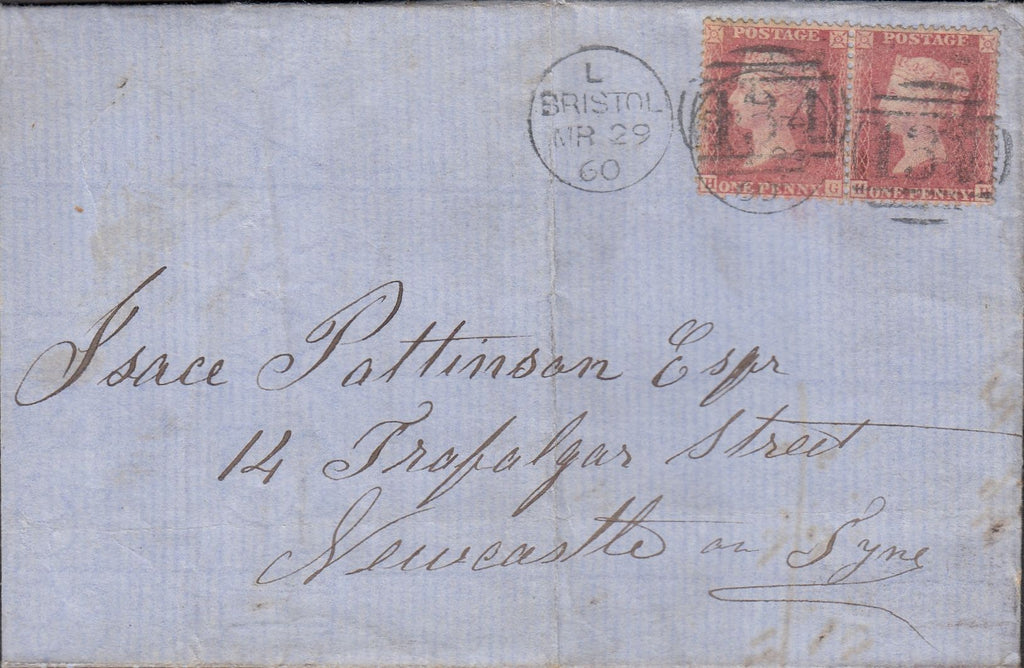 L
BRISTOL
MR 29
60
POSTAGE
ONE PENNY
H G
POSTAGE
ONE PENNY
H
Isace Pattinson Esqr
14 Trafalgar Street
Newcastle on Tyne